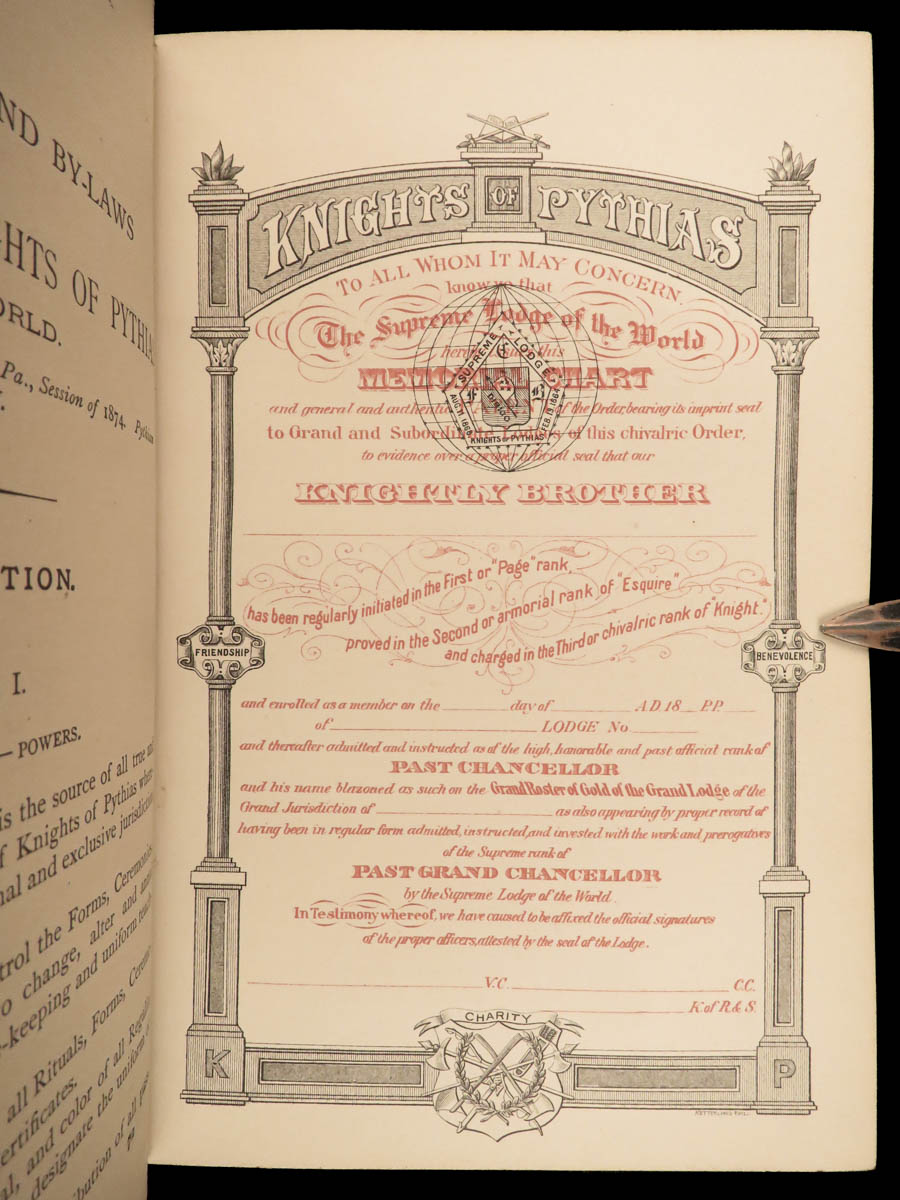 ND BY-LAWS
GHTS OF PYTHIA
ORLD.
Pa., Session of 1874. Pythian
TION.
I.
— POWERS.
is the source of all true and
f Knights of Pythias where
nal and exclusive jurisdiction
trol the Forms, Ceremonies
o change, alter and
-keeping and uniform
all Rituals, Forms, Ceremo
ertificates.
al, and color of all Regalia
designate the uniform
ibution of all
KNIGHTS OF PYTHIAS
TO ALL WHOM IT MAY CONCERN,
know ye that
The Supreme Lodge of the World
this
MEMORIAL CHART
and general and authentic of the Order, bearing its imprint seal
to Grand and Subordinate Lodges of this chivalric Order,
to evidence over a proper official seal that our
KNIGHTLY BROTHER
SUPREME LODGE
F C B
DIRIGO
AUG. 11, 1868 FEB. 19, 1864
KNIGHTS OF PYTHIAS
has been regularly initiated in the First or "Page" rank,
proved in the Second or armorial rank of "Esquire"
and charged in the Third or chivalric rank of "Knight."
FRIENDSHIP
BENEVOLENCE
and enrolled as a member on the day of A D 18 P.P.
of LODGE No
and thereafter admitted and instructed as of the high, honorable and past official rank of
PAST CHANCELLOR
and his name blazoned as such on the Grand Roster of Gold of the Grand Lodge of the
Grand Jurisdiction of as also appearing by proper record of
having been in regular form admitted, instructed, and invested with the work and prerogatives
of the Supreme rank of
PAST GRAND CHANCELLOR
by the Supreme Lodge of the World.
In Testimony whereof, we have caused to be affixed the official signatures
of the proper officers, attested by the seal of the Lodge.
V.C. C.C.
K of R & S.
CHARITY
K P